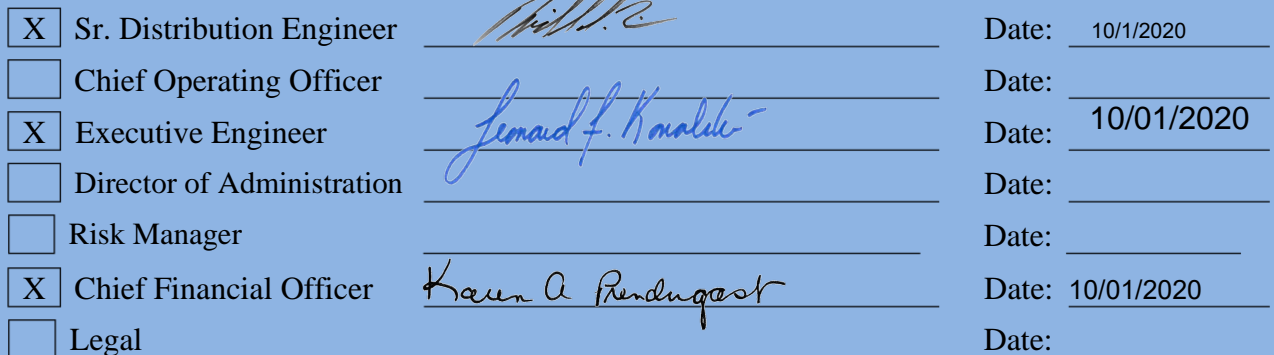 X Sr. Distribution Engineer Date: 10/1/2020
Chief Operating Officer Date:
X Executive Engineer Leonard F. Date: 10/01/2020
Director of Administration Date:
Risk Manager Date:
X Chief Financial Officer Karen A Prendergast Date: 10/01/2020
Legal Date: